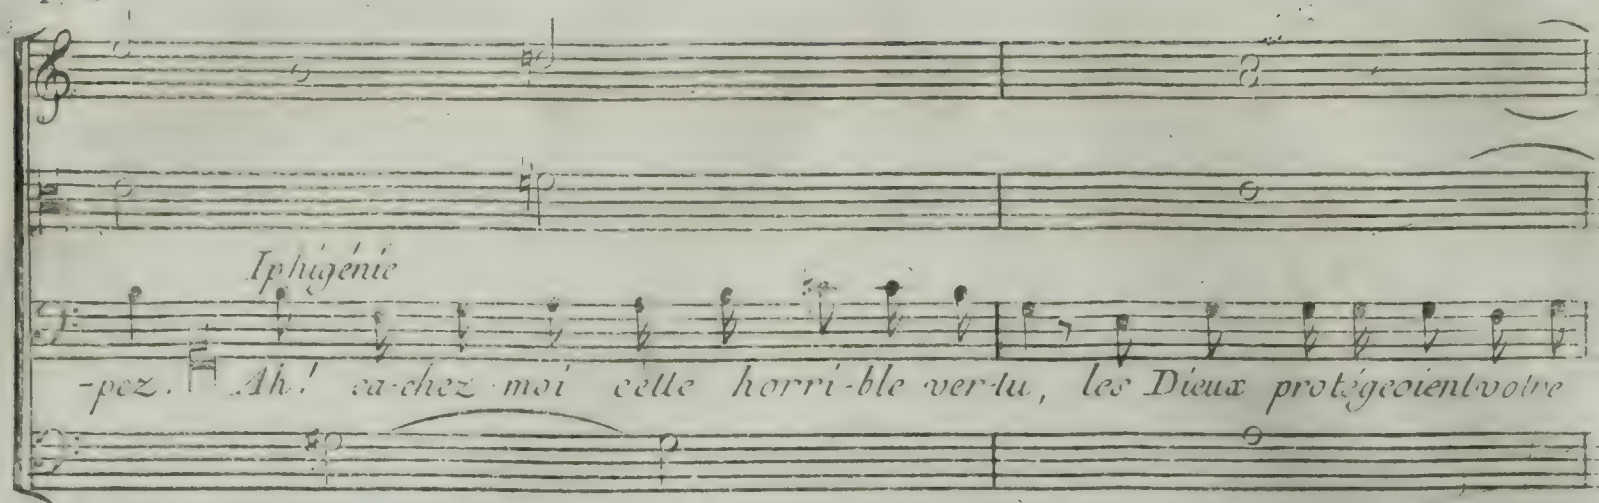 Iphigénie
-pez. Ah! ca-chez moi cette horri-ble ver-tu, les Dieux protégeoient votre